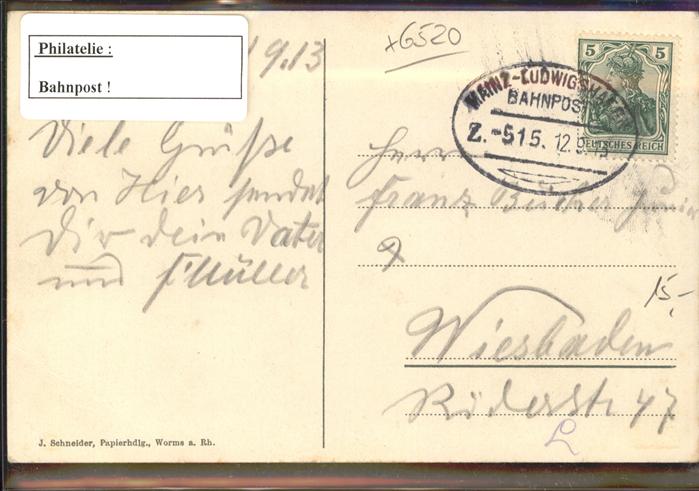 Philatelie :
Bahnpost !
9.13
Viele Grüße
von Hier sendet
Dir dein Vater
und Müller
J. Schneider, Papierhdlg., Worms a. Rh.
+6520
MAINZ-LUDWIGSHAFEN
BAHNPOST
Z.-515. 12.9.13
5 5
DEUTSCHES REICH
Herr
Franz
15,-
Wiesbaden
47